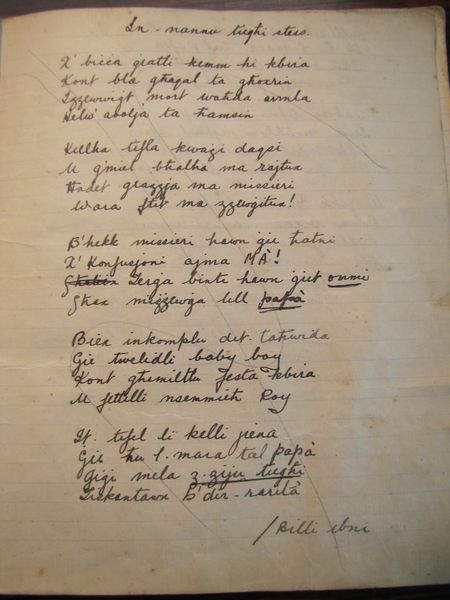 In - nannu tieghi stess.
X' bicca gratti kemm hi kbira
Kont bla ghaqal ta ghoxrin
Izzewwigt mort wahda armla
Helwa ta hamsin
Kellha tifla kwazi daqsi
U gmiel bhalha ma rajtux
Hadet grazzja ma missieri
Wara ftit ma zzewgitux!
B'hekk missieri hawn gie hatni
X' Konfusjoni ajma MÀ!
Terga bintu hawn giet ommi
Ghax mizzewga lill papà
Biex inkomplu dit- tahwida
Gie twelidli baby boy
Kont ghemiltlu festa kbira
U ftit nsemmieh Roy
It- tifel li kelli jiena
Gie hu l- mara tal papà
Gigi mela z-ziju tieghi
Iskantaw b'dir- rarità
/Billi ibni